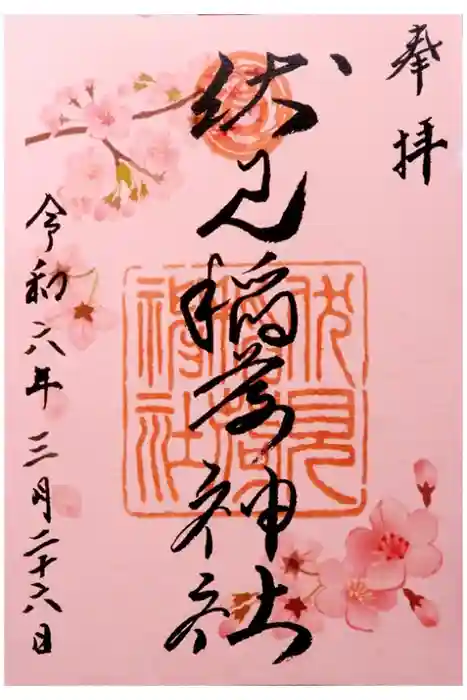 奉拝
伏見稲荷神社
伏見稲荷神社
令和六年三月二十六日